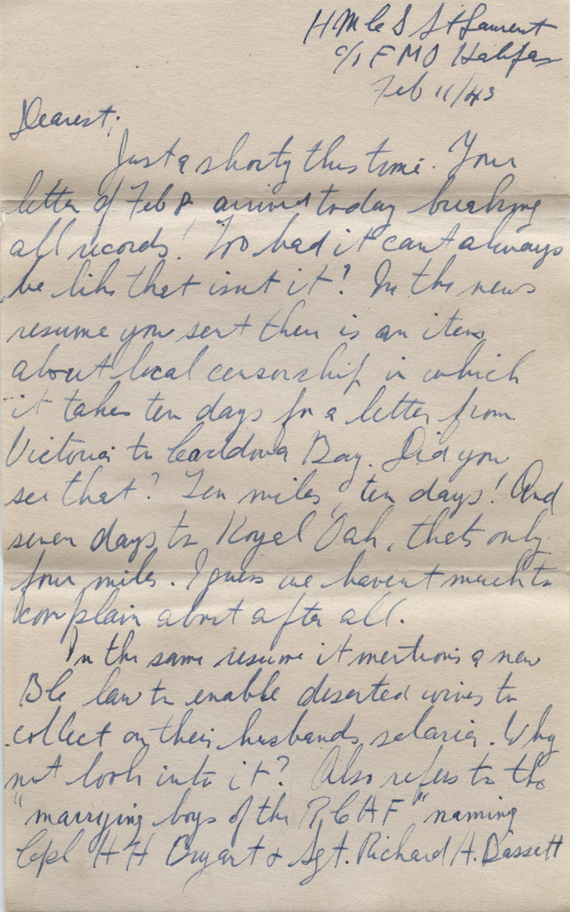 HMCS St Laurent
c/o FMO Halifax
Feb 11/43
Dearest;
Just a shorty this time. Your
letter of Feb 8 arrived today breaking
all records! Too bad it cant always
be like that isnt it? In the news
resume you sent there is an item
about local censorship in which
it takes ten days for a letter from
Victoria to Cordova Bay. Did you
see that? Ten miles, ten days! And
seven days to Royal Oak, thats only
four miles. I guess we havent much to
complain about after all.
In the same resume it mentions a new
BC law to enable deserted wives to
collect on their husbands salaries. Why
not look into it? Also refers to the
"marrying boys of the RCAF" naming
Cpl H H Bryant & Sgt. Richard H. Bassett